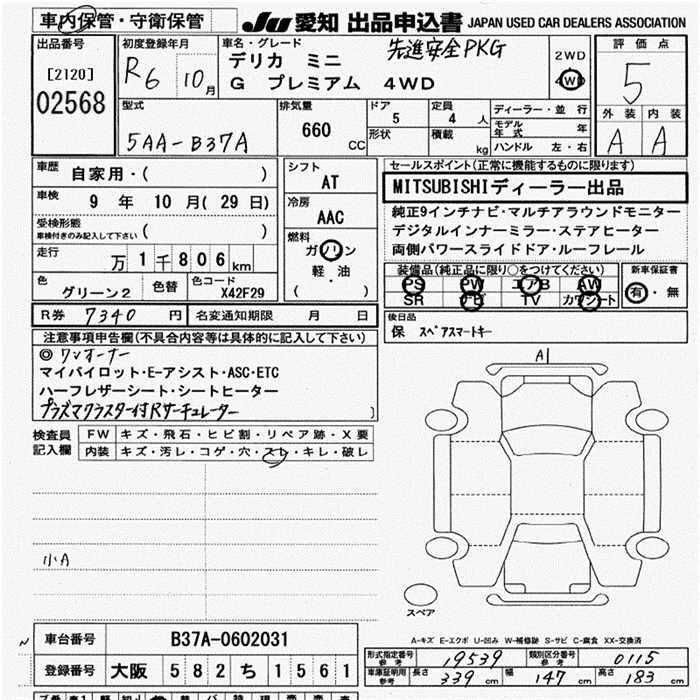 車内保管・守衛保管
JU 愛知 出品申込書 JAPAN USED CAR DEALERS ASSOCIATION
出品番号
[2120]
02568
初度登録年月
R6 10月
車名・グレード
先進安全PKG
デリカ ミニ
G プレミアム 4WD
2WD
4WD
評価点
5
外装 内装
A A
型式
5AA-B37A
排気量
660
CC
ドア
5
定員
4 人
形状
積載
kg
ディーラー・並行
モデル年式 年
ハンドル 左・右
車歴
自家用・( )
車検
9 年 10 月(29 日)
受検形態
車検付きのみ記入して下さい ( )
走行
万 1 千 8 0 6 km
色
グリーン2
色替
色コード
X42F29
シフト
AT
冷房
AAC
燃料
ガソリン
軽・油
( )
セールスポイント(正常に機能するものに限ります)
MITSUBISHIディーラー出品
純正9インチナビ・マルチアラウンドモニター
デジタルインナーミラー・ステアヒーター
両側パワースライドドア・ルーフレール
装備品(純正品に限り○をつけてください)
PS PW エアB AW
SR ナビ TV カワシート
新車保証書
有・無
R券 7340 円
名変通知期限 月 日
後日品
保 スペアスマートキー
注意事項申告欄(不具合内容等は具体的に記入して下さい)
◎ ワンオーナー
マイパイロット・E-アシスト・ASC・ETC
ハーフレザーシート・シートヒーター
プラズマクラスター付Rサーキュレーター
検査員記入欄
FW キズ・飛石・ヒビ割・リペア跡・X要
内装 キズ・汚レ・コゲ・穴・スレ・キレ・破レ
小A
A1
スペア
A-キズ E-エクボ U-凹み W-補修跡 S-サビ C-腐食 XX-交換済
車台番号 B37A-0602031
登録番号 大阪 5 8 2 ち 1 5 6 1
形式指定番号 参考 19539
類別区分番号 参考 0115
車庫証明用 参考 長さ 339 cm 幅 147 cm 高さ 183 cm